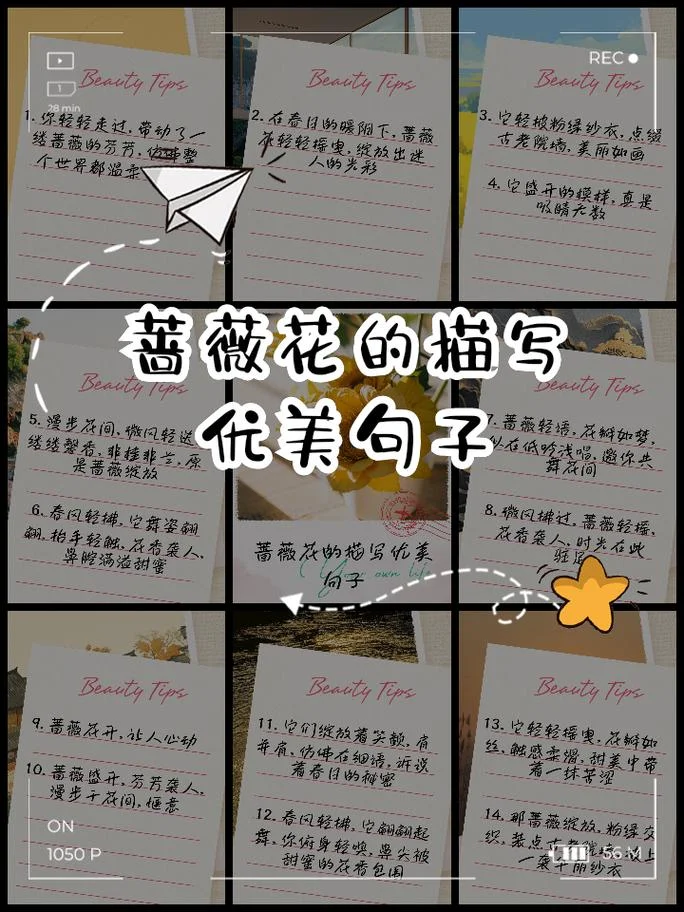 REC
28 min
Beauty Tips
1. 你轻轻走过，带动了一
缕蔷薇的芳芳，仿佛整
个世界都温柔
Beauty Tips
2. 在春日的暖阳下，蔷薇
花轻轻摇曳，绽放出迷
人的光彩
Beauty Tips
3. 它轻披粉绿纱衣，点缀
古老院墙，美丽如画
4. 它盛开的模样，真是
吸睛无数
蔷薇花的描写
优美句子
Beauty Tips
5. 漫步花间，微风轻送
缕缕馨香，非桂非兰，原
是蔷薇绽放
6. 春风轻拂，它舞姿翩
翩，抬手轻触，花香袭人，
鼻腔满溢甜蜜
蔷薇花的描写优美
句子
own life
Beauty Tips
7. 蔷薇轻语，花瓣如梦，
似在低吟浅唱，邀你共
舞花间
8. 微风拂过，蔷薇轻摇，
花香袭人，时光在此
驻足
Beauty Tips
9. 蔷薇花开，让人心动
10. 蔷薇盛开，芬芳袭人，
漫步于花间，惬意
Beauty Tips
11. 它们绽放着笑颜，肩
并肩，仿佛在细语，诉说
着春日的秘密
12. 春风轻拂，它翩翩起
舞，你俯身轻嗅，鼻尖被
甜蜜的花香包围
Beauty Tips
13. 它轻轻摇曳，花瓣如
丝，触感柔滑，甜美中带
着一抹苦涩
14. 那蔷薇绽放，粉绿交
织，装点古老院墙，披上
一袭华丽纱衣
ON
1050 P
56 M